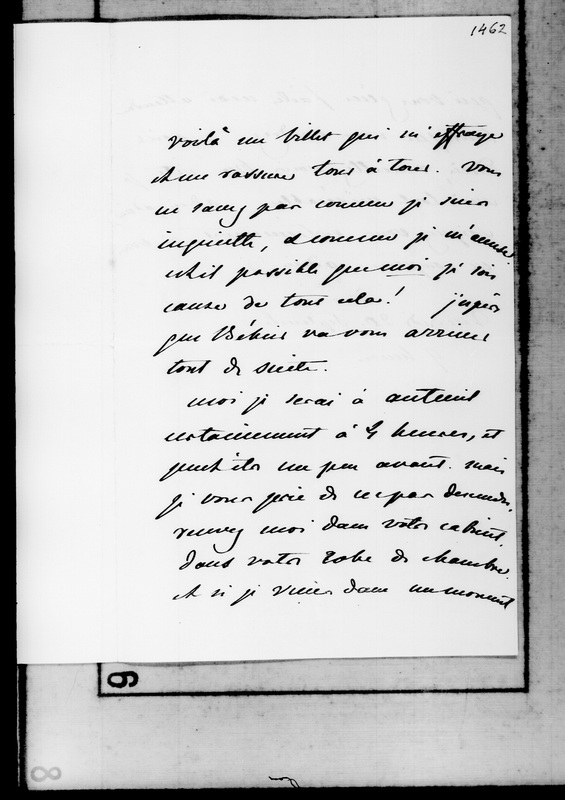 1462
voilà un billet qui m'effraye
et me rassure tour à tour. vous
ne savez pas comme je suis
inquiette, et comme je m'accuse
est il possible que moi je sois
cause de tout cela! j'espère
que Béhier va vous arriver
tout de suite.
moi je serai à auteuil
certainement à 4 heures, et
peut être un peu avant. mais
je vous prie de ne pas descendre,
recevez moi dans votre cabinet.
dans votre robe de chambre.
et si je viens dans un moment
6
8